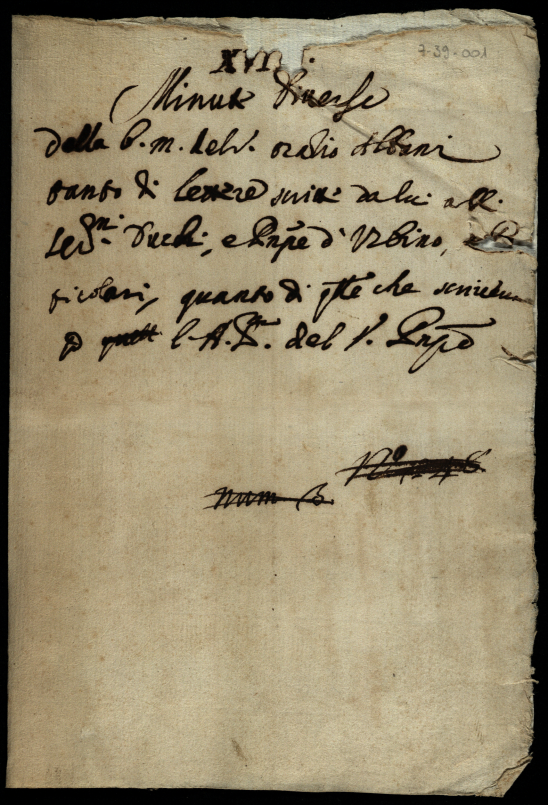 7-39-001
XVII
Minute diverse
della b. m. del S.r Oratio Albani
tanto di lettere scritte da lui alli
Ser.mi Duchi, e Pnpe d'Urbino, e P
ticolari, quanto di qlle che scriveva
l'A. del S.r Pnpe
N.o
num B.